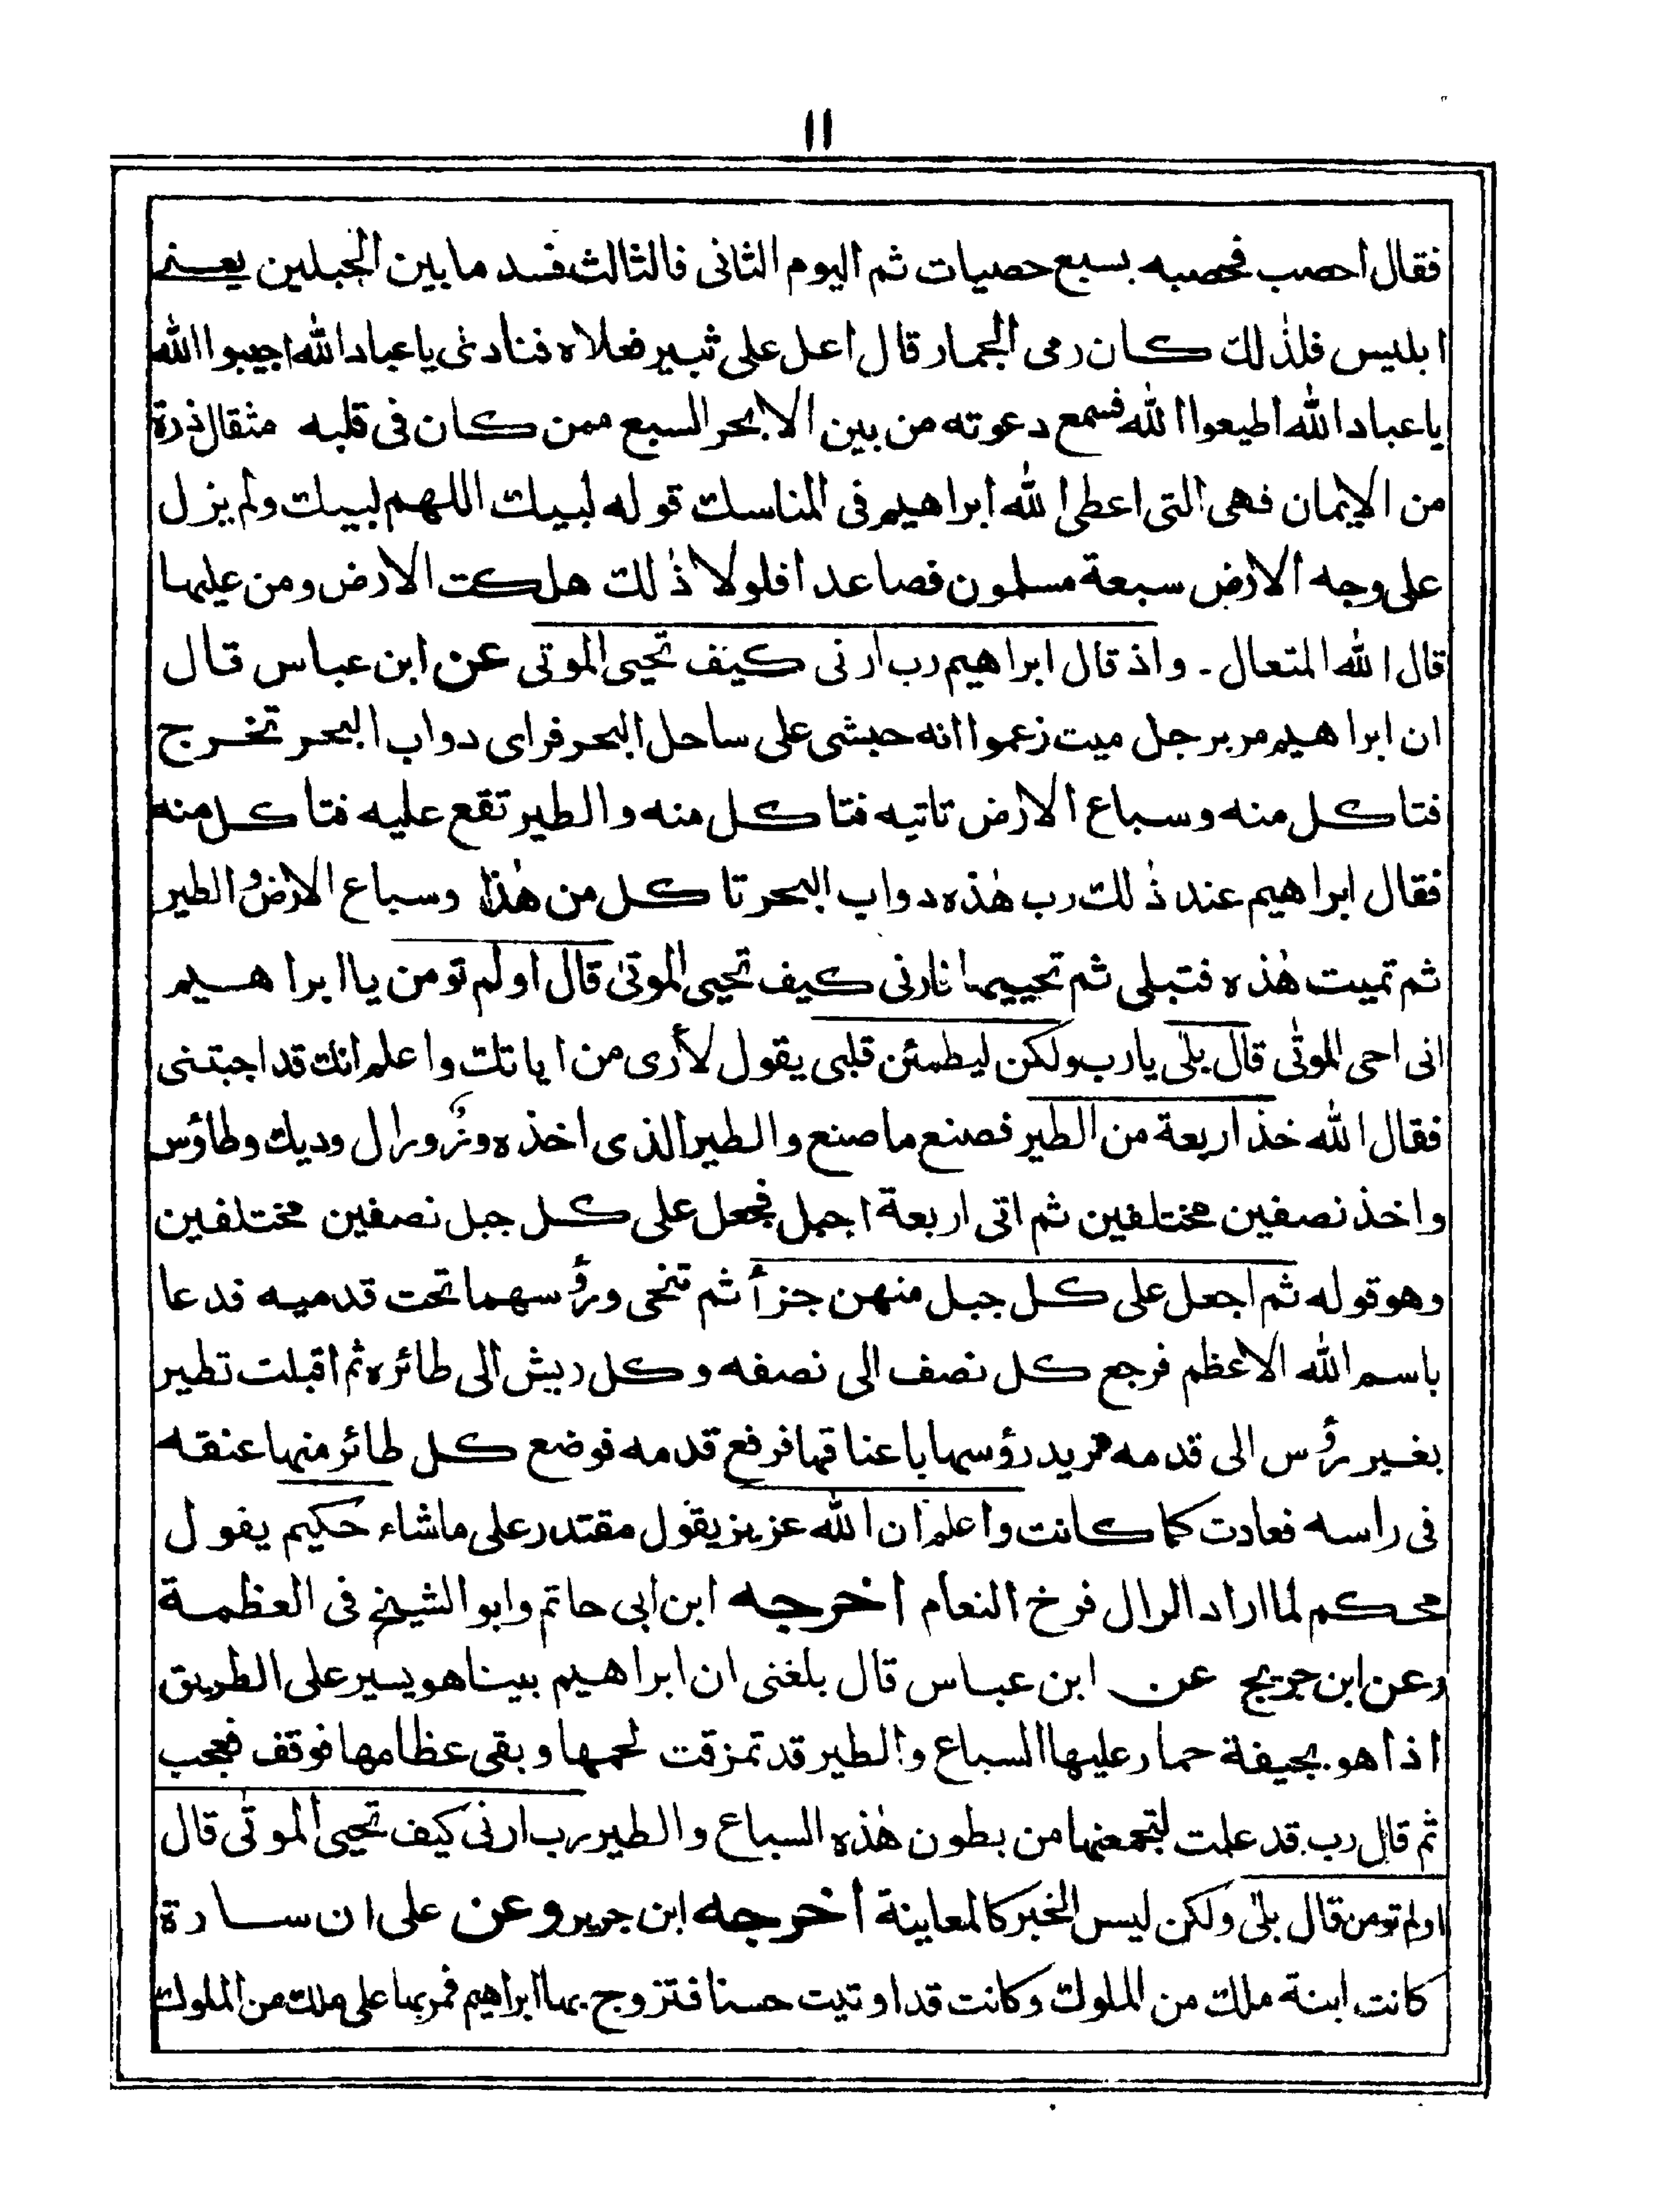 ١١
فقال احصب فحصبه بسبع حصيات ثم اليوم الثانى فالثالث فسد ما بين الجبلين يعنى
ابليس فلذٰلك كان رمى الجمار قال اعل على ثبير فعلاه فنادىٰ يا عباد الله اجيبوا الله
يا عباد الله اطيعوا الله فسمع دعوته من بين الابحر السبع ممن كان فى قلبه مثقال ذرة
من الايمان فهى التى اعطى الله ابراهيم فى المناسك قوله لبيك اللهم لبيك ولم يزل
على وجه الارض سبعة مسلمون فصاعدا فلولا ذٰلك هلكت الارض ومن عليها
قال الله المتعال ـ واذ قال ابراهيم رب ارنى كيف تحيى الموتى عن ابن عباس قال
ان ابراهيم مر برجل ميت زعموا انه حبشى على ساحل البحر فراى دواب البحر تخرج
فتاكل منه وسباع الارض تاتيه فتاكل منه والطير تقع عليه فتاكل منه
فقال ابراهيم عند ذٰلك رب هٰذه دواب البحر تاكل من هٰذا وسباع الارض والطير
ثم تميت هٰذه فتبلى ثم تحييها فارنى كيف تحيى الموتىٰ قال اولم تومن يا ابراهيم
انى احى الموتٰى قال بلٰى يارب ولكن ليطمئن قلبى يقول لأرى من اياتك واعلم انك قد اجبتنى
فقال الله خذ اربعة من الطير فصنع ما صنع والطير الذى اخذه وزٌ ورال وديك وطاؤس
واخذ نصفين مختلفين ثم اتى اربعة اجبل فجعل على كل جبل نصفين مختلفين
وهو قوله ثم اجعل على كل جبل منهن جزأ ثم تنحى ورؤسهما تحت قدميه فدعا
باسم الله الاعظم فرجع كل نصف الى نصفه وكل ريش الى طائره ثم اقبلت تطير
بغير رؤس الى قدمه تريد رؤسها باعناقها فرفع قدمه فوضع كل طائر منها عنقه
فى راسه فعادت كما كانت واعلم ان الله عزيز يقول مقتدر على ماشاء حكيم يقول
محكم لما اراد الرال فرخ النعام اخرجه ابن ابى حاتم وابو الشيخ فى العظمة
وعن ابن جريج عن ابن عباس قال بلغنى ان ابراهيم بينا هو يسير على الطريق
اذا هو بجيفة حمار عليها السباع والطير قد تمزقت لحمها وبقى عظامها فوقف فعجب
ثم قال رب قد علمت لتجمعنها من بطون هٰذه السباع والطير رب ارنى كيف تحيى الموتٰى قال
اولم تومن قال بلٰى ولكن ليس الخبر كالمعاينة اخرجه ابن جرير وعن على ان سارة
كانت ابنة ملك من الملوك وكانت قد اوتيت حسنا فتزوج بها ابراهيم فمر بها على ملك من الملوك